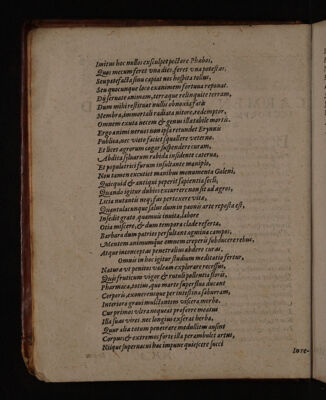 Inuitus hoc nullos exsculpet pectore Phœbos,
Quos mecum feret vna dies, feret vna potestas.
Seu patefacta sinu capiat nos hospita tellus,
Seu quocunque loco exanimem fortuna reponat.
Dij seruate animam, terraque relinquite terram,
Dum mihi restituat nullis obnoxia fatis
Membra, immortali radiata nitore, redemptor,
Omnem exuta necem & genus illætabile mortis.
Ergo animi neruos non ipsa retundet Erynnis
Publica, nec victo faciet squallere veterno.
Et licet agrorum cogar suspendere curam,
Abdita siluarum rabida insidente caterua,
Et populatrici furum insultante manipulo,
Non tamen excutiet manibus monumenta Galeni,
Quicquid & antiqui peperit sapientia secli,
Quando igitur dubiis excurrere non sit ad agros,
Licia nutantis neque fas pertexere vitæ,
Quantulacunque salus dum in pœonis arte reposta est,
Insedit grato, quamuis inuita, labore
Otia miscere, & dum tempora clade referta,
Barbara dum patrios persultant agmina campos,
Mentem animumque omnem creperis subducere rebus,
Atque inconceptas penetralibus abdere curas.
Omnis in hoc igitur studium meditatio fertur,
Naturæ vt penitos valeam explorare recessus,
Quis fruticum vigor & rutuli pollentia floris,
Pharmaca, totius, quo marte superflua ducant
Corporis, exonerentque per intestina saburram,
Interiora graui multantem viscera morbo.
Cur primas vltra nequeat proferre meatus
Illa suas vires, nec longius exserat herba,
Quur alia totum penetrare medullitus ausint
Corpus & extremos forte illa perambulet artus,
Ni que supernacui hoc impune quiescere succi
Iure-